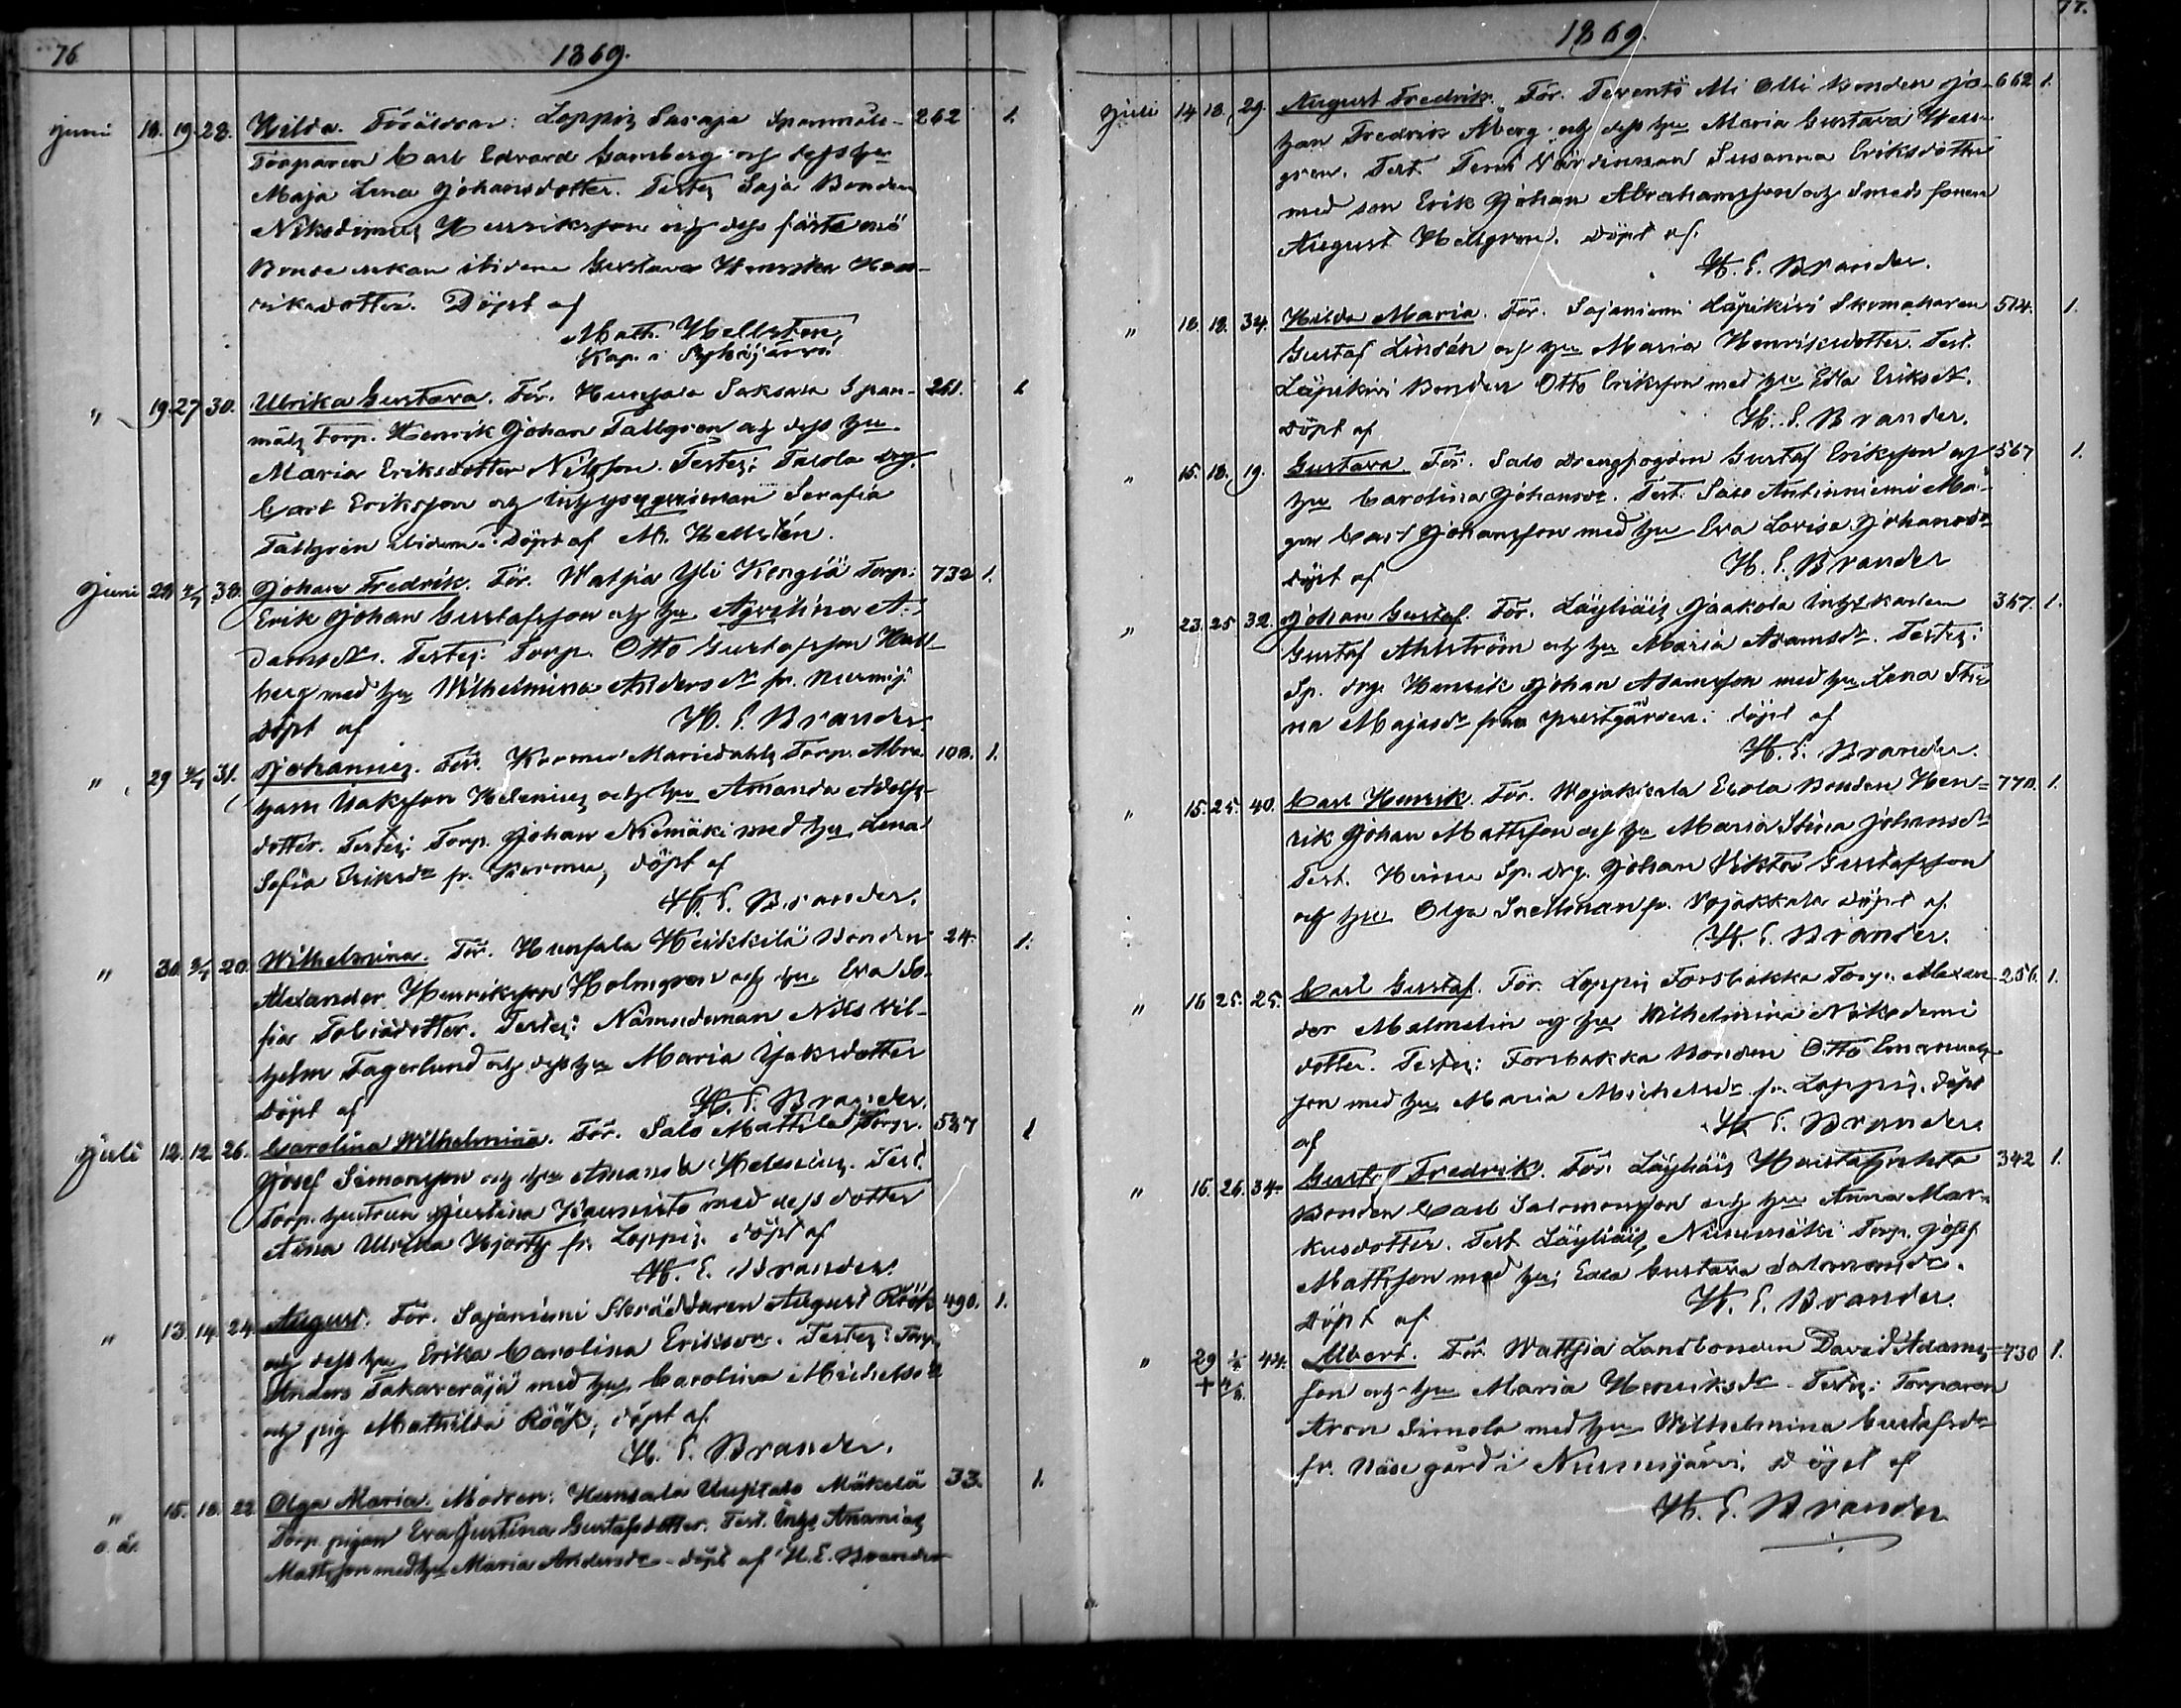 76
1869.
Juni 18. 19. 28. Hilda. Föräldrar: Loppis Sasaja Spanmåls- 262 1.
Torparen Carl Edvard Gamberg och dess hu
Maja Lena Johansdotter. Testes Saja Bonden
Nikodimus Henriksson och dess fästemö
Bonde ibidem Gustava Hen-
riksdotter. Döpt af
Math. Hellsten,
Kap. i Pyhäjärvi
" 19 27 30. Ulrika Gustava. För. Hunsala Saksala Span- 261. 1
måls Torp. Henrik Johan Tallgren och dess hu
Maria Eriksdotter Nilsson. Testes: Talola drg.
Carl Eriksson och Serafia
Tallgren ibidem. Döpt af M. Hellstén.
Juni 29 4/7 38. Johan Fredrik. För. Watsia Yli Kengiä Torp. 732 1.
Erik Johan Gustafsson och hu Agrikina A-
damsdr. Testes: Torp. Otto Gustafsson Hall-
berg med hu Wilhelmina Andersdr fr. Nurmij.
döpt af H. E. Brander.
" 29 4/7 31. Johannes. För. Kormu Mariedahls Torp. Abra- 108. 1.
ham Isaksson Helenius och hu Amanda Adolfs-
dotter. Testes: Torp. Johan Niemäki med hu Lena
Sofia Eriksdr fr. Kormu, döpt af
H. E. Brander.
" 30. 20. Wilhelmina. För. Hunsala Heikkilä Bonden 24. 1.
Alexander Henriksson Holmgren och hu Eva So-
fia Tobiädotter. Testes: Nämndeman Nils Vil-
helm Fagerlund och dess hu Maria Isaksdotter
Döpt af H. E. Brander.
Juli 12. 12. 26. Carolina Wilhelmina. För. Salo Mattila Torp. 537 1
Josef Simonsson och hu Amanda Helenius. Test.
Torp. hustrun Justina med dess dotter
Anna Ulrika Hjorth fr. Loppis. döpt af
H. E. Brander.
" 13. 14. 24. August. För. Sajaniemi Skräddaren August Röök 490. 1.
och dess hu Erika Carolina Eriksdr. Testes: Torp.
Anders Takaveräjä med hu Carolina Michelsdr
och pig. Mathilda Röök, döpt af
H. E. Brander.
" 15. 18. 22 Olga Maria. Modren: Hunsala Uusitalo Mäkelä 33. 1.
o. ä. Torp. pigan Eva Justina Gustafsdotter. Test. Inhs Ananias
Mattsson med hu Maria Andersdr. döpt af H. E. Brander
77.
1869.
Juli 14 18. 29. August Fredrik. För. Terentö Ali Olli Bonden Jo- 662 1.
han Fredrik Åberg och dess hu Maria Gustava Hell-
gren. Test. Susanna Eriksdotter
med son Erik Johan Abrahamsson och Smeds sonen
August Hellgren. Döpt af.
H. E. Brander.
" 18. 18. 34. Hilda Maria. För. Sajaniemi Läpikivi Skomakaren 514. 1.
Gustaf Linsén och hu Maria Henriksdotter. Test.
Läpikivi Bonden Otto Eriksson med hu Edla Eriksdr.
Döpt af H. E. Brander.
" 15. 18. 19. Gustava. För. Salo Drengfogden Gustaf Eriksson och 567 1.
hu Carolina Johansdr. Test. Salo Antinniemi Må-
gen Carl Johansson med hu Eva Lovisa Johansdr
döpt af H. E. Brander
" 23. 25 32. Johan Gustaf. För. Läyliäis Jaakola Inhs karlen 367. 1.
Gustaf Ahlström och hu Maria Adamsdr. Testes:
Sp. drg. Henrik Johan Adamsson med hu Lena Sti-
na Majasdr från prestgården. döpt af
H. E. Brander.
" 15. 25. 40. Carl Henrik. För. Wojakkala Erola Bonden Hen- 770. 1.
rik Johan Mattsson och hu Maria Stina Johansdr
Test. Sp. drg. Johan Viktor Gustafsson
och hu Olga Snellman fr. Vojakkala döpt af.
H. E. Brander.
" 16 25. 25. Carl Gustaf. För. Loppis Forsbakka Torp. Alexan- 256. 1.
der Malmelin och hu Wilhelmina Nikodemi
dotter. Testes: Forsbakka Bonden Otto Emanuels-
son med hu Maria Michelsdr fr. Loppis. döpt
af H. E. Brander.
" 16. 26. 34. Gustaf Fredrik. För. Läyliäis 342 1.
Bonden Carl Salomonsson och hu Anna Mar-
kusdotter. Test. Läyliäis Niinimäki Torp. Josef
Mattsson med hu Eva Gustava Salomonsdr.
Döpt af H. E. Brander.
" 29 44. Albert. För. Wattsia Landbonden David Adams- 730 1.
+ 4/8. son och hu Maria Henriksdr. Testes: Torparen
Aron Simola med hu Wilhelmina Gustafsdr
fr. Näse gård i Nurmijärvi. Döpt af
H. E. Brander